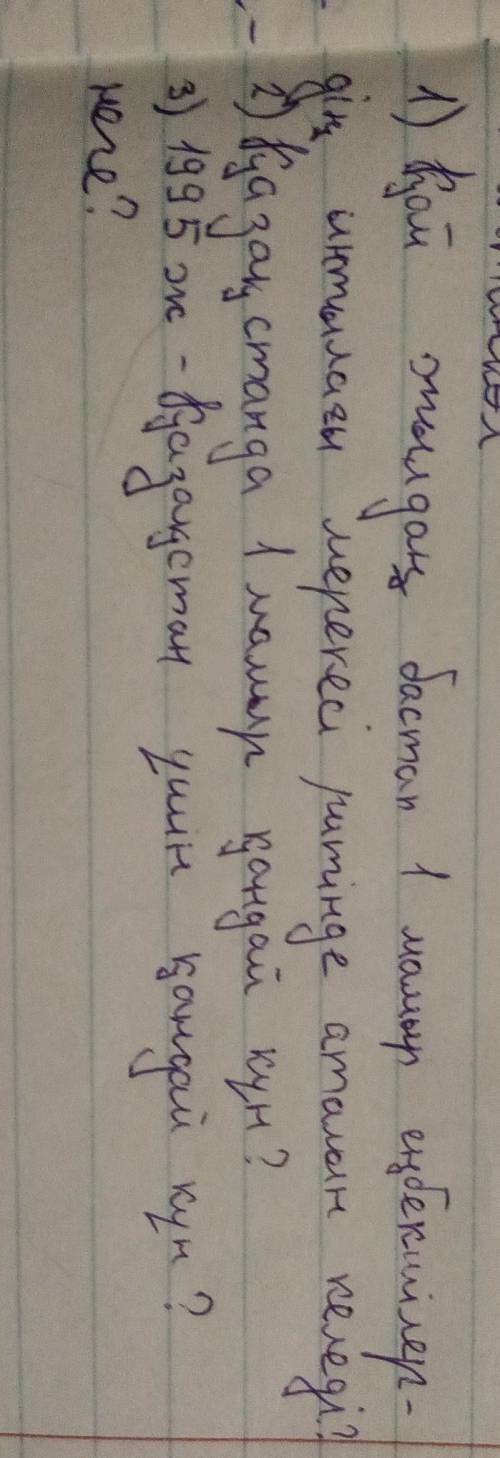 1) Қай жылдаң бастап 1 мамыр еңбекшілер-
дің ынтылағы мерекесі ритінде аталын келеді?
2) Қуазақстанда 1 мамыр қандай күн?
3) 1995 ж - Қуазақстан үшін қандай күн?
неге?